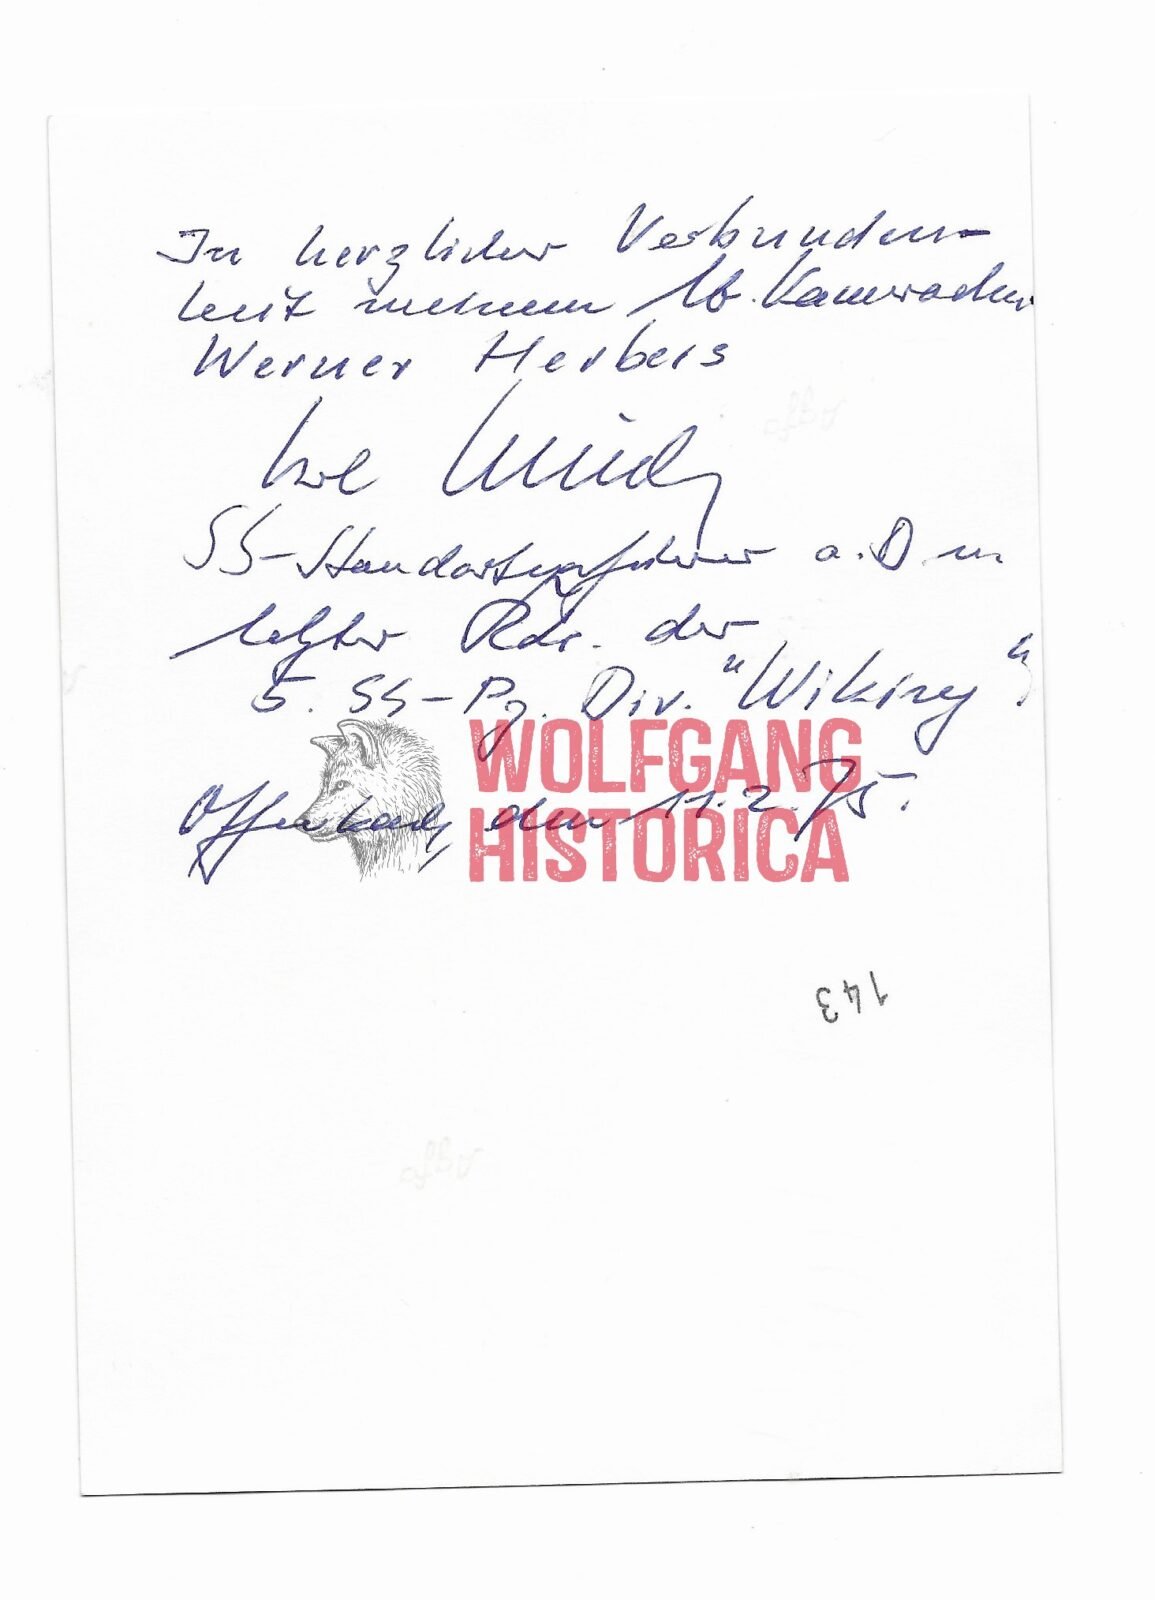 In herzlicher Verbunden-
heit meinem lb. Kameraden
Werner Herbers
Karl Ullrich
SS-Standartenführer a.D. u.
letzter Kdr. der
5. SS-Pz. Div. "Wiking"
WOLFGANG
Offenbach, den 11.2.75.
HISTORICA
143
Agfa
Agfa